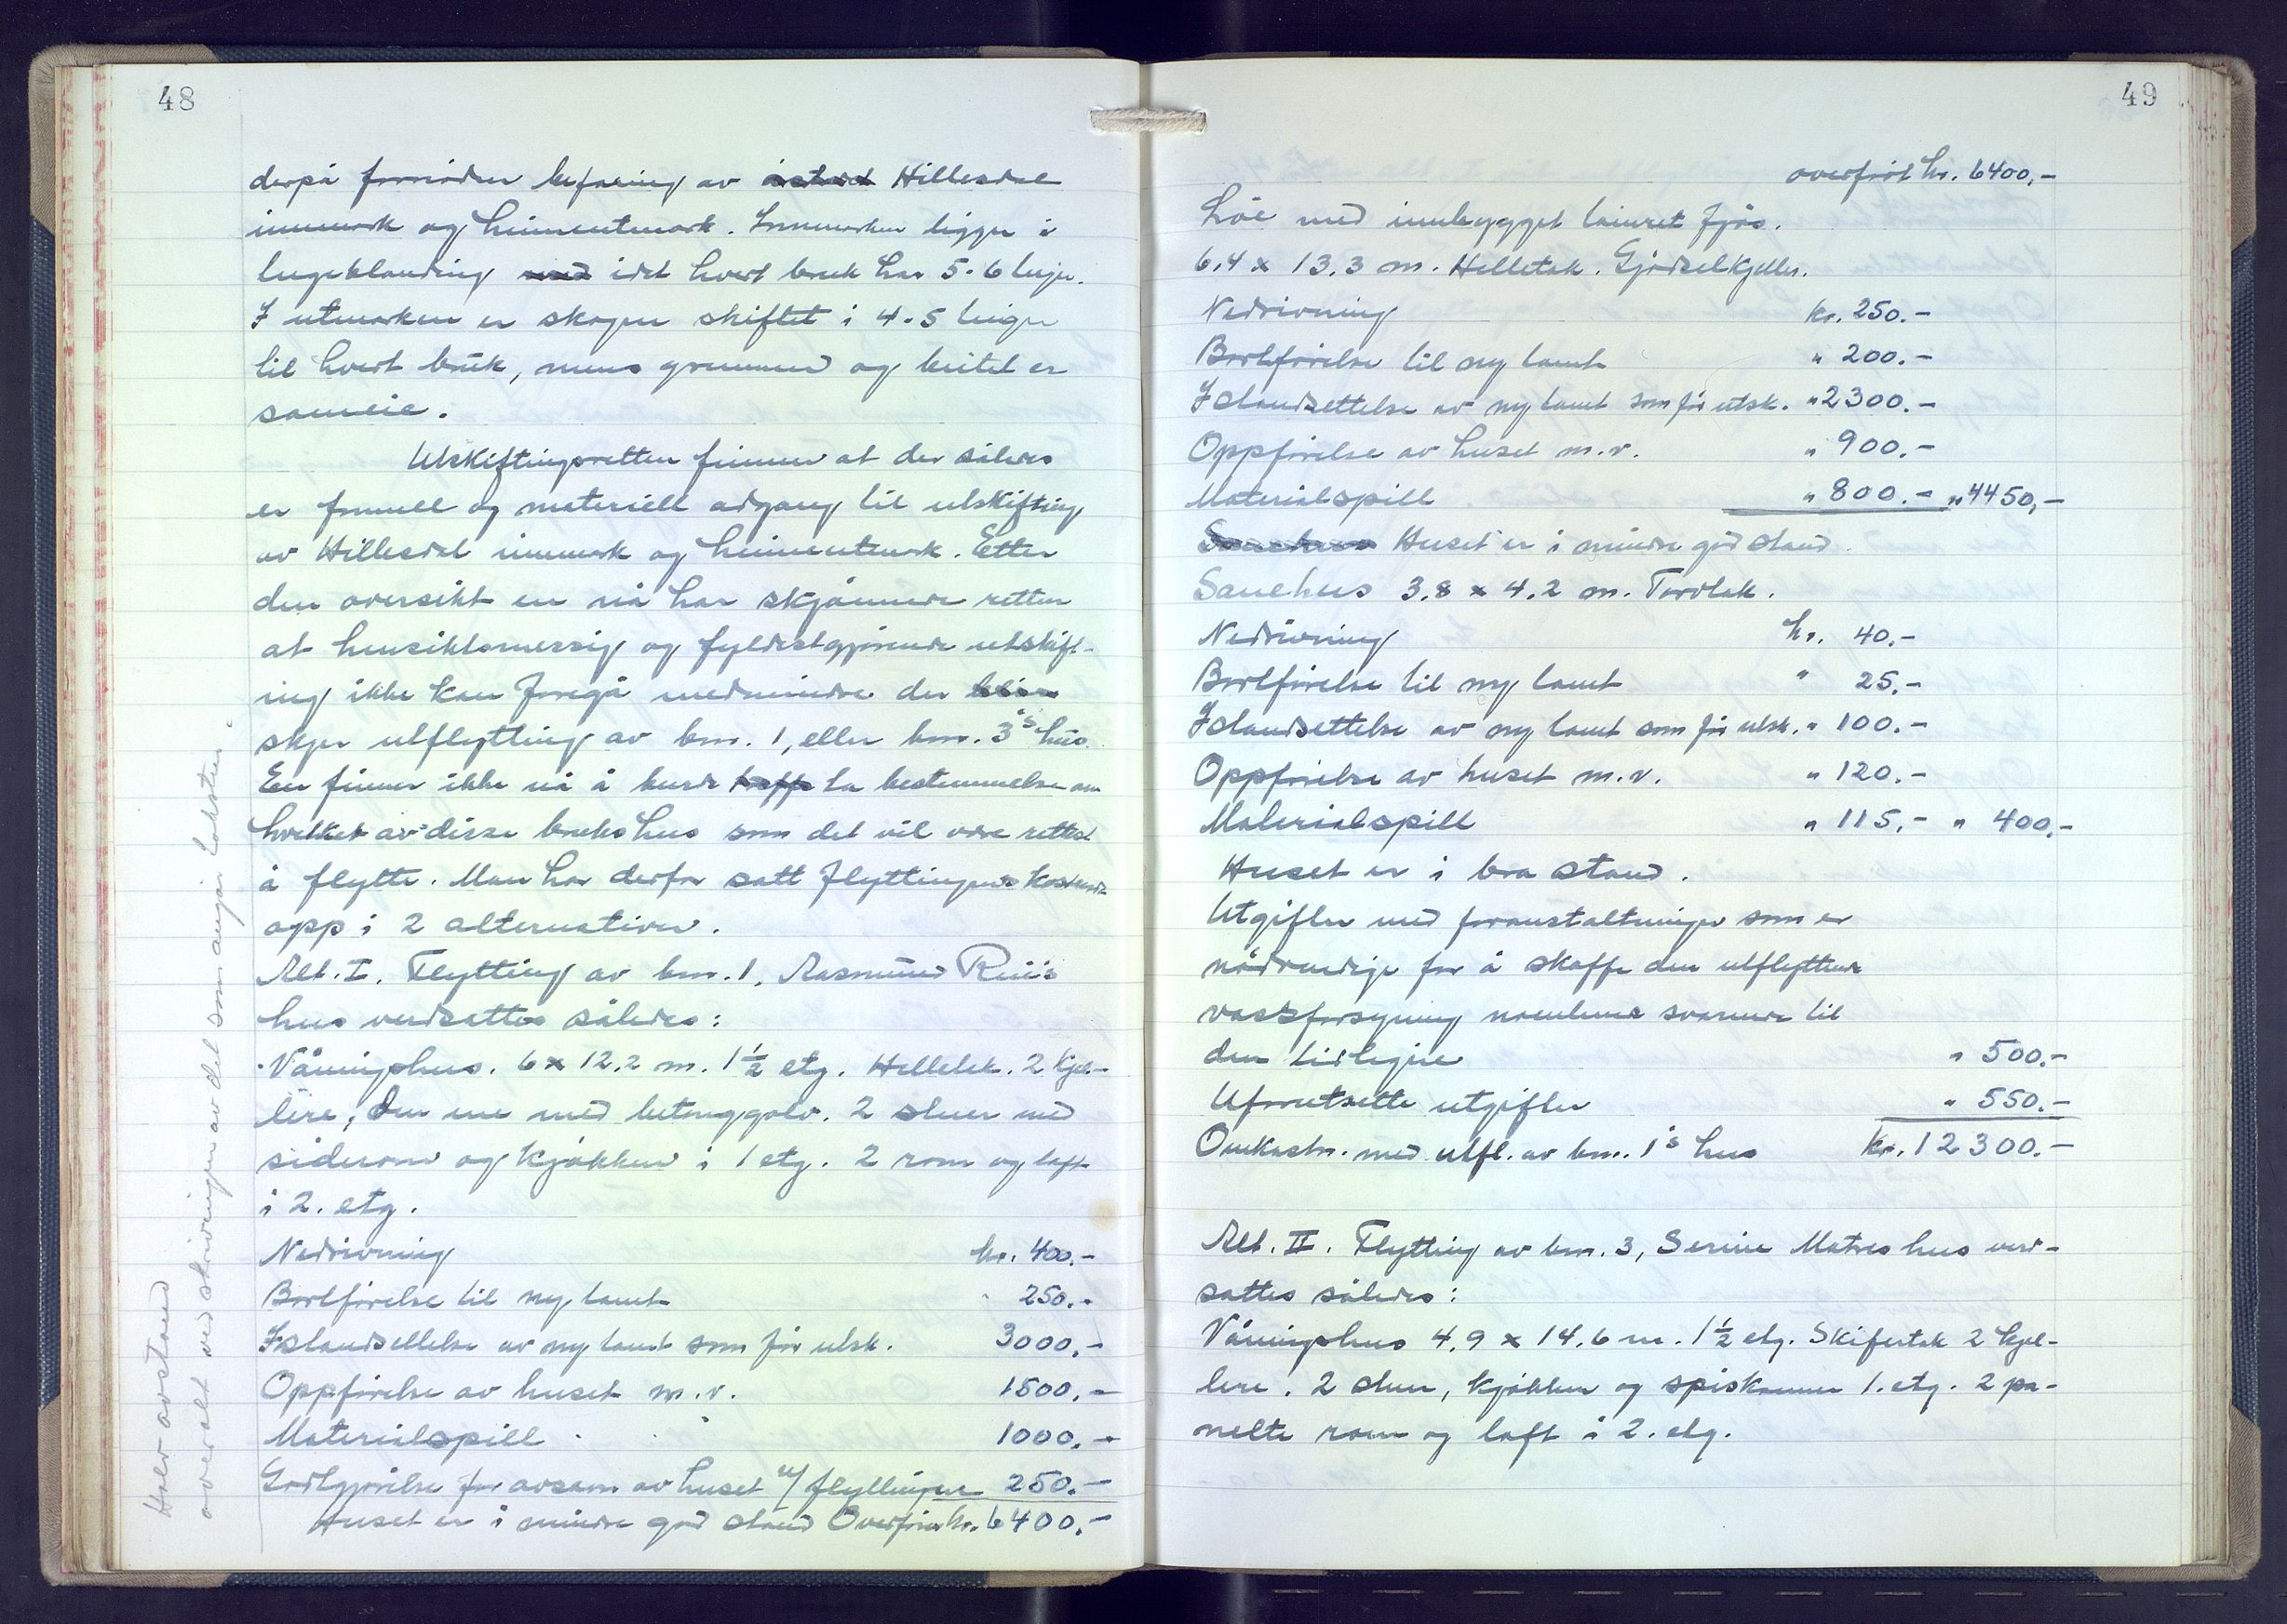 48
derpå fornöden befaring av åstad Hillesdal
innmark og heimeutmark. Innmarken ligger i
teigeblanding med idet hvert bruk har 5-6 teiger.
I utmarken er skogen skiftet i 4-5 teiger
til hvert bruk, mens grunnen og beitet er
sameie.
Utskiftingsretten finner at der således
er formell og materiell adgang til utskifting
av Hillesdal innmark og heimeutmark. Etter
den oversikt en nå har skjönner retten
at hensiktsmessig og fyldestgjörende utskift-
ing ikke kan foregå medmindre der blir
skjer utflytting av bnr. 1, eller bnr. 3's hus.
En finner ikke nå å burde treffe ta bestemmelse om
hvilket av disse bruks hus som det vil være rettest
å flytte. Man har derfor satt flyttingens kostende
opp i 2 alternativer.
Alt. I. Flytting av bnr. 1, Rasmund Riis
hus verdsattes således:
Våningshus. 6 x 12,2 m. 1½ etg. Helletek. 2 kjel-
lere, den ene med betonggolv. 2 stuer med
siderom og kjökken i 1 etg. 2 rom og loft
i 2. etg.
Nedrivning kr. 400.-
Bortförelse til ny tomt " 250.-
Istandsettelse av ny tomt som för utsk. 3000,-
Oppförelse av huset m.v. 1500,-
Materialspill 1000.-
Godtgjörelse for avsavn av huset u/ flyttingen 250.-
Huset er i mindre god stand Overföres kr. 6400.-
Halv avstand
overalt ved skrivningen av det som angår tokster.
49
overfört kr. 6400,-
Löe med innbygget tömret fjös.
6,4 x 13,3 m. Helletak. Gjödselkjeller.
Nedrivning kr. 250.-
Bortförelse til ny tomt " 200.-
Istandsettelse av ny tomt som för utsk. " 2300.-
Oppförelse av huset m.v. " 900.-
Materialspill " 800.- " 4450,-
Sauehus Huset er i mindre god stand.
Sauehus 3,8 x 4,2 m. Torvtak.
Nedrivning kr. 40.-
Bortförelse til ny tomt " 25.-
Istandsettelse av ny tomt som för utsk. " 100.-
Oppförelse av huset m.v. " 120.-
Materialspill " 115,- " 400,-
Huset er i bra stand.
Utgifter med foranstaltninger som er
nödvendige for å skaffe den utflyttende
vassforsyning noenlunde svarende til
den tidligere " 500.-
Uforutsette utgifter " 550.-
Omkostn. med utfl. av bnr. 1's hus kr. 12300.-
Alt. II. Flytting av bnr. 3, Serine Matres hus verd-
sattes således:
Våningshus 4,9 x 14,6 m. 1½ etg. Skifertak 2 kjel-
lere. 2 stuer, kjökken og spiskammer 1. etg. 2 pa-
nelte rom og loft i 2. etg.